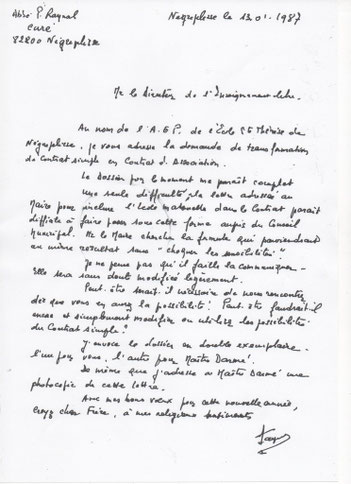 Abbé P. Raynal
Curé
82800 Nègrepelisse
Nègrepelisse le 13.01.1987
Mr le Directeur de l'Enseignement libre.
Au nom de l'A.E.P. de l'Ecole Ste Thérèse de
Nègrepelisse, je vous adresse la demande de transformation
de Contrat simple en Contrat d'Association.
Le Dossier pour le moment me paraît complet
une seule difficulté: la lettre adressée au
Maire pour inclure l'Ecole maternelle dans le Contrat paraît
difficile à faire passer sous cette forme auprès du Conseil
Municipal. Mr le Maire cherche la formule qui parviendrait
au même résultat sans "choquer les sensibilités"
Je ne pense pas qu'il faille la communiquer.
Elle sera sans doute modifiée légèrement.
Peut-être serait-il nécessaire de nous rencontrer
dès que vous en aurez la possibilité. Peut-être faudrait-il
encore et simplement modifier ou utiliser les possibilités
du Contrat simple!
J'envoie le dossier en double exemplaire.
l'un pour vous, l'autre pour Maître
De même que j'adresse à Maître une
photocopie de cette lettre.
Avec mes bons voeux pour cette nouvelle année,
croyez cher Frère, à mes religieux sentiments